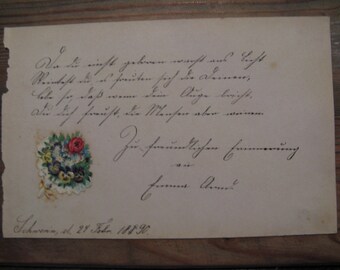 Da du einst geboren warst ans Licht
Weintest du, es freuten sich die Deinen;
Lebe so, daß wenn dein Auge bricht,
Du dich freust, die Menschen aber weinen.
Zur freundlichen Erinnerung
an
Emma
d. 28 Febr. 1890.